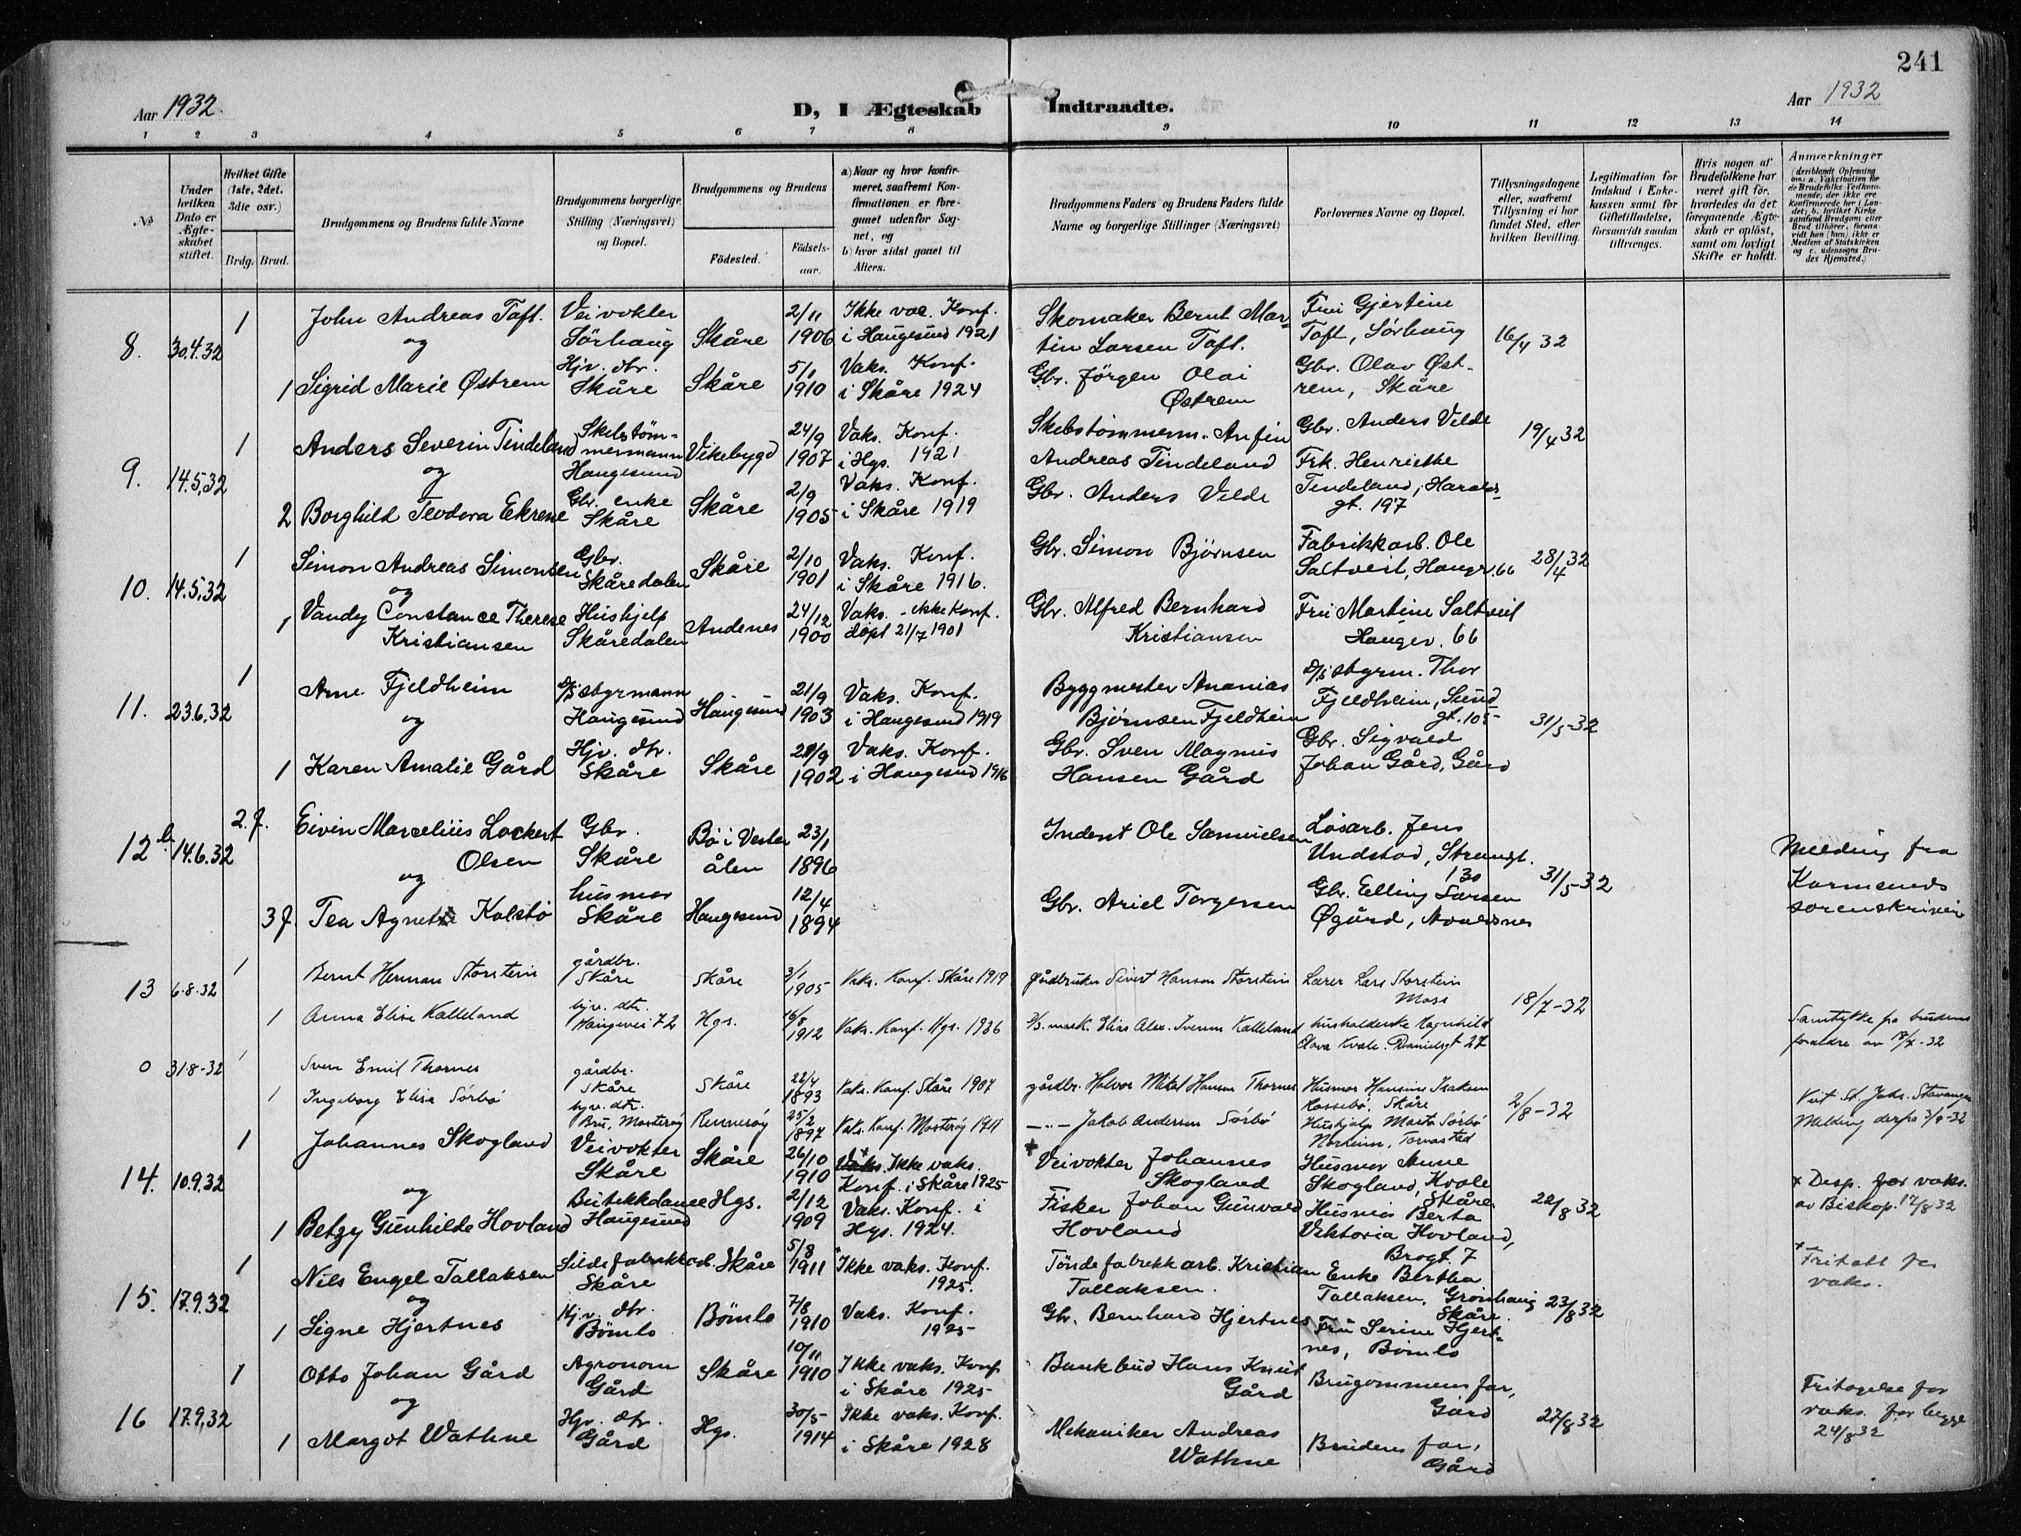 241
Aar 1932.
D, I Ægteskab Indtraadte.
Aar 1932
1 2 3 4 5 6 7 8 9 10 11 12 13 14
No
Under hvilken Dato er Ægteskabet stiftet.
Hvilket Gifte (1ste, 2det. 3die osv.)
Brdg. Brud.
Brudgommens og Brudens fulde Navne
Brudgommens borgerlige Stilling (Næringsvei) og Bopæl.
Brudgommens og Brudens
Födested.
Födselsaar.
a) Naar og hvor konfirmeret, saafremt Konfirmationen er foregaaet udenför Sognet, og
b) hvor sidst gaaet til Alters.
Brudgommens Faders og Brudens Faders fulde Navne og borgerlige Stillinger (Næringsvei)
Forlovernes Navne og Bopæl.
Tillysningsdagene eller, saafremt Tillysning ei har fundet Sted, efter hvilken Bevilling.
Legitimation for Indskud i Enkekassen samt for Giftetilladelse, forsaavidt saadan tiltrænges.
Hvis nogen af Brudefolkene har været gift för, hvorledes da det foregaaende Ægteskab er oplöst, samt om lovligt Skifte er holdt.
Anmærkninger
8. 30.4.32 1 John Andreas Toft. Veivokter Sörhaug Skåre 2/11 1906 Ikke vac. Konf. i Haugesund 1921 Skomaker Bernt Martin Larsen Toft. Fru Gjertine Toft, Sørhaug 16/4 32
og
1 Sigrid Marie Østrem Hjv. dtr. Skåre Skåre 5/1 1910 Vaks. Konf. i Skåre 1924 Gbr. Jörgen Olai Østrem Gbr. Olav Østrem, Skåre
9. 14.5.32 1 Anders Severin Tindeland Skibstömmermann Haugesund Vikebygd 24/9 1907 Vaks. Konf. i Hgs. 1921 Skibstømmerm. Anfin Andreas Tindeland Gbr. Anders Velde 19/4 32
og
2 Borghild Teodora Ekrene Gbr. enke Skåre Skåre 2/9 1905 Vaks. Konf. i Skåre 1919 Gbr. Anders Velde Frk. Henriette Tindeland, Haraldsgt. 197
10. 14.5.32 1 Simon Andreas Simonsen Gbr. Skåredalen Skåre 2/10 1901 Vaks. Konf. i Skåre 1916. Gbr. Simon Björnsen Fabrikkarb. Ole Saltveit, Haugv. 66 28/4 32
og
1 Vandy Constance Therese Kristiansen Hushjelp Skåredalen Andenes 24/12 1900 Vaks. - ikke Konf. döpt 21/7 1901 Gbr. Alfred Bernhard Kristiansen Fru Martine Saltveit Haugev. 66
11. 23.6.32 1 Arne Fjeldheim D/S styrmann Haugesund Haugesund 21/9 1903 Vaks. Konf. i Haugesund 1919 Byggmester Ananias Bjørnsen Fjeldheim D/S styrm. Thor Fjeldheim, Sundgt. 105 31/5-32
og
1 Karen Amalie Gård Hjv. dtr. Skåre Skåre 28/9 1902 Vaks. Konf. i Haugesund 1916 Gbr. Sven Magnus Hansen Gård Gbr. Sigvald Johan Gård, Gård
12 b 14.6.32 2.f. Eivin Marcelius Lockert Olsen Gbr. Skåre Bö i Vesterålen 23/1 1896 Inderst Ole Samuelsen Løsarb. Jens Undstad, Strandgt. 130 31/5-32 Melding fra Karmsunds sorenskriveri
og
3 f. Tea Agnete Kolstö husmor Skåre Haugesund 12/4 1894 Gbr. Ariel Torgersen Gbr. Elling Larsen Øgård, Avaldsnes
13 6-8-32 1 Bernt Herman Storstein gårdbr. Skåre Skåre 3/1 1905 Vaks. Konf. Skåre 1919 gårdbruker Sivert Hanson Storstein Lærer Lars Storstein Moss 18/7-32
1 Anna Elise Kalleland hjv. dtr. Haugevei 72 Hgs. 16/8 1912 Vaks. Konf. Hgs. 1926 D/S mask. Elias Alex. Iversen Kalleland husholderske Magnhild Olava Kvale. Daniels gt 27 Samtykke fra brudens foreldre av 18/7-32
0 31-8-32 1 Sven Emil Thornes gårdbr. Skåre Skåre 22/4 1893 Vaks. Konf. Skåre 1907 gårdbr. Halvor Mikal Hansen Thornes Husmor Hansine Isaksen Rossebö, Skåre 2/8-32 Viet St. Joh. Stavanger Melding derfra 3/9-32
1 Ingeborg Elisa Sörbö hjv. dtr. Bru, Mosterøy Rennesöy 25/2 1897 Vaks. Konf. Mosterøy 1911 - " - Jakob Andersen Sörbö Hushjelp Marta Sörbö Norheim, Torvastad
14. 10.9.32 1 Johannes Skogland Veivokter Skåre Skåre 26/10 1910 + Ikke vaks. Konf. i Skåre 1925 + Veivokter Johannes Skogland Husmor Anne Skogland, Kvale Skåre 22/8 32 + Disp. for vaks. av Biskop. 17/8 32
og
1 Betzy Gunhilde Hovland Butikkdame Haugesund Hgs. 2/12 1909 Vaks. Konf. i Hgs. 1924. Fisker Johan Gunvald Hovland Husmor Berta Viktoria Hovland, Brogt. 7
15. 17.9.32 1 Nils Engel Tallaksen Sildefabrikkarb. Skåre Skåre 5/8 1911 + Ikke vaks. Konf. 1925. Töndefabrikkarb. Kristian Tallaksen. Enke Bertha Tallaksen, Grønhaug Skåre. 23/8 32 + Fritatt for vaks.
og
1 Signe Hjertnes Hjv. dtr. Bömlo Bömlo 7/8 1910 Vaks. Konf. 1925- Gbr. Bernhard Hjertnes Fru Serine Hjertnes, Bömlo
16 17.9.32 1 Otto Johan Gård Agronom Gård Skåre 10/11 1910 Ikke vaks. Konf i Skåre 1925- Bankbud Hans Knut Gård Brugommens far, Gård 27/8 32 Fritagelse for vaks. for begge 24/8 32
og
1 Margot Wathne Hjv. dtr. Gård Hgs. 30/5- 1914 Ikke vaks. Konf. i Skåre 1928 Mekaniker Andreas Wathne Brudens far, Gård